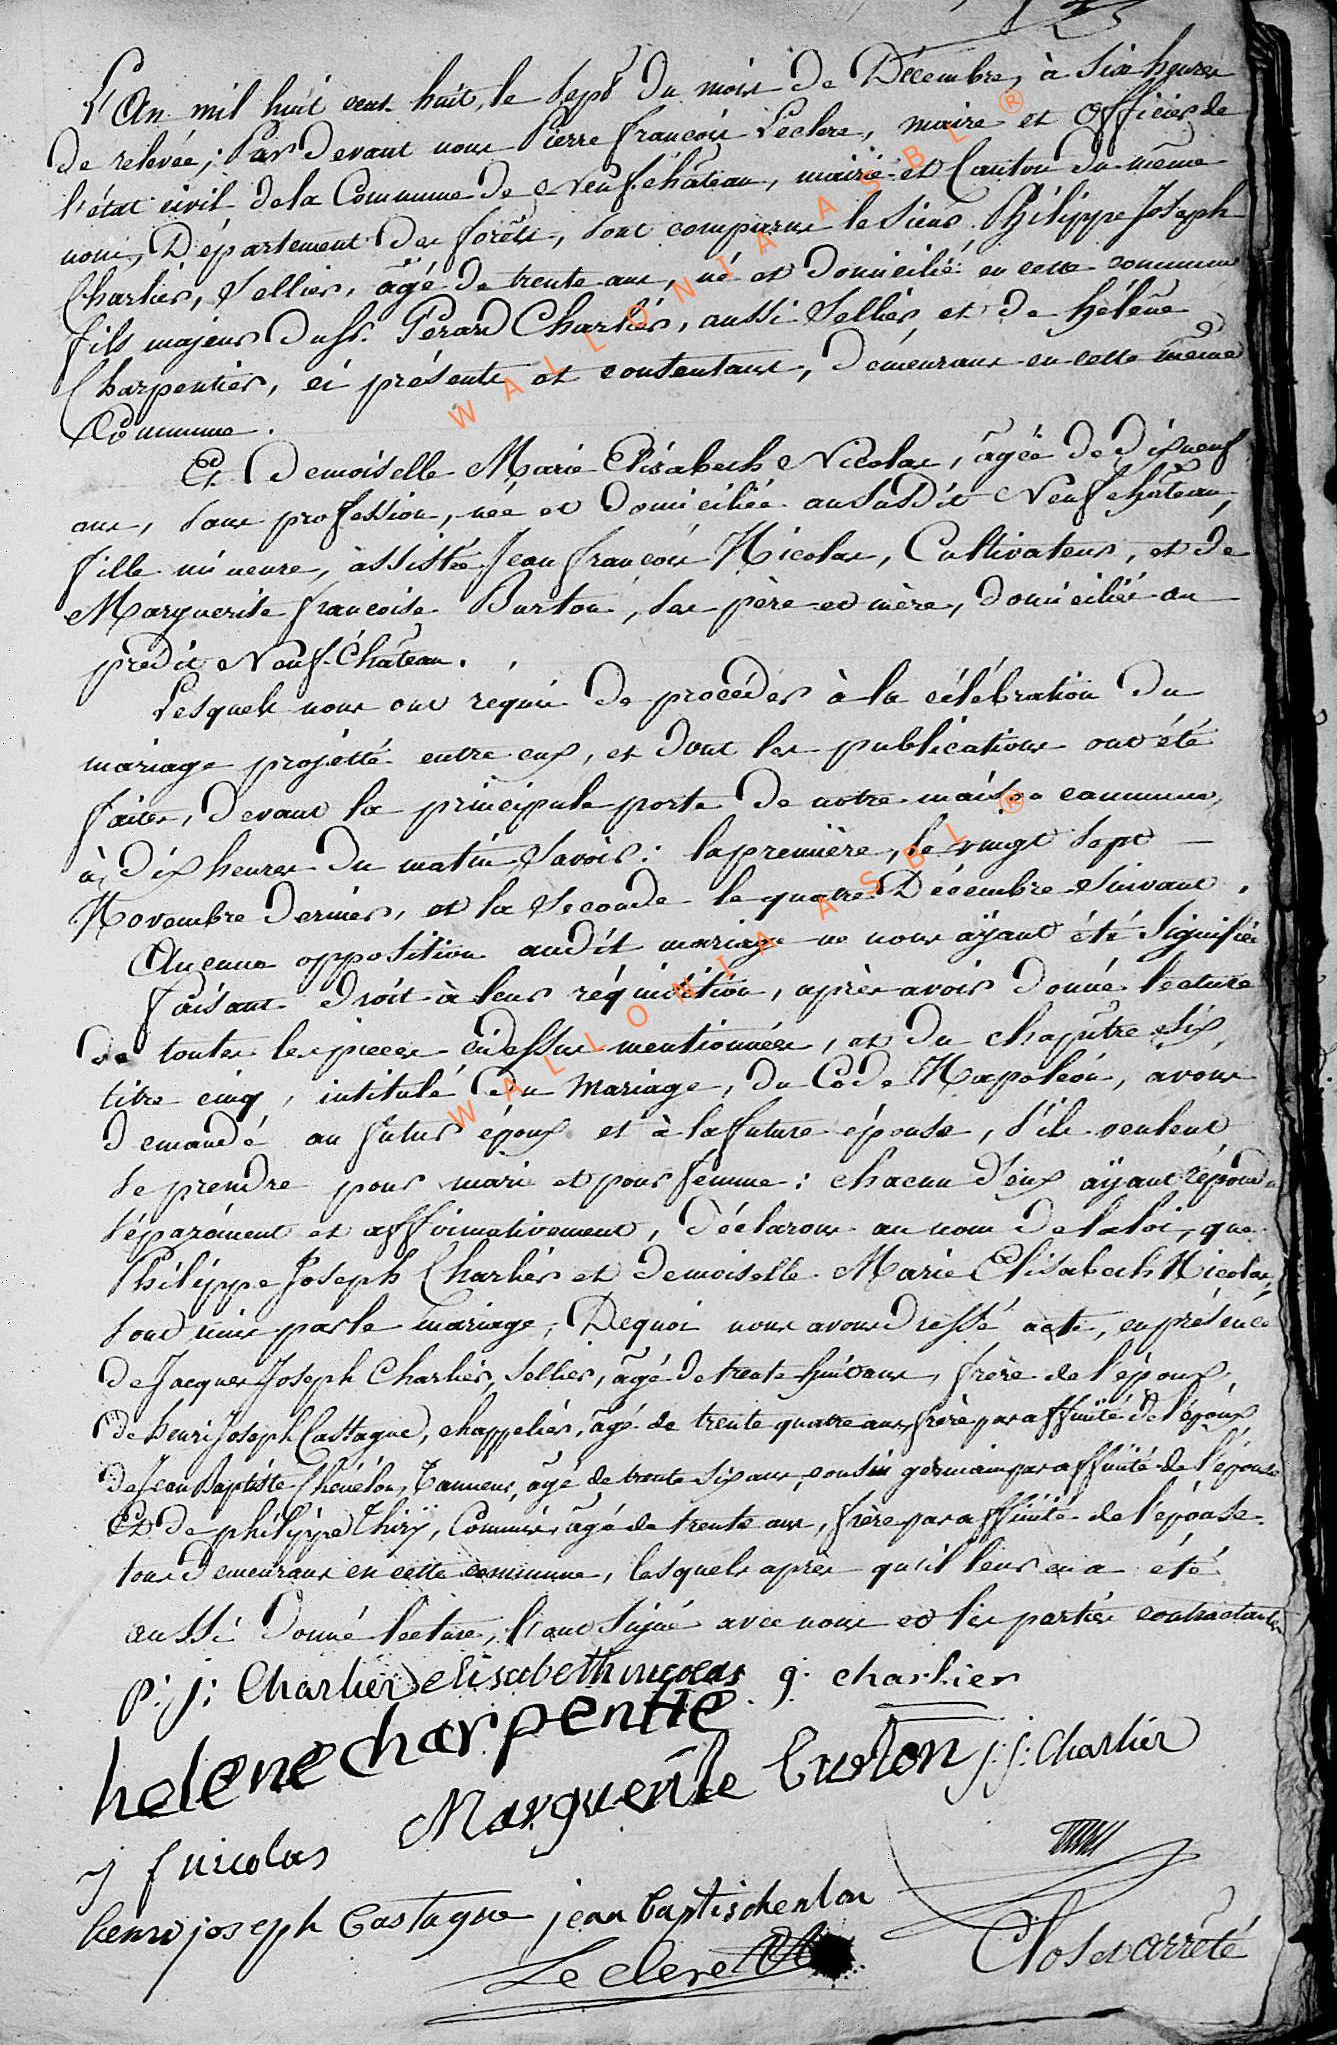 L'An mil huit cent huit, le sept du mois de Décembre, à six heures
de relevée; Pardevant nous Pierre françois Leclere, maire et officier de
l'état civil de la Commune de Neufchâteau, mairie et Canton du même
nom, Département des forêts, sont comparus le sieur Philippe Joseph
Charlier, Sellier, âgé de trente ans, né et domicilié en cette commune
fils majeur du Sr. Gerard Charlier, aussi Sellier et de hélène
Charpentier, ci présents et consentans, demeurans en cette même
Commune.
Et Demoiselle Marie Elisabeth Nicolas, âgée de dixneuf
ans, sans profession, née et domiciliée au susdit Neufchâteau,
fille mineure, assistée Jean françois Nicolas, Cultivateur, et de
Marguerite françoise Burton, ses père et mère, domiciliés au
prédit Neuf-Château.
Lesquels nous ont réquis de procéder à la célébration du
mariage projetté entre eux, et dont les publications ont été
faites, devant la principale porte de notre maison commune,
à dix heures du matin, Savoir: la première, le vingt sept
Novembre dernier, et la seconde le quatre Décembre suivant.
Aucune opposition audit mariage ne nous ayant été signifiée
faisant droit à leur réquisition, après avoir donné lecture
de toutes les pieces cidessus mentionnées, et du chapitre six,
titre cinq, intitulé du Mariage, du Code Napoléon, avons
demandé au futur époux et à la future épouse, s'ils veulent
se prendre pour mari et pour femme: chacun d'eux ayant répondu
séparément et affirmativement, déclarons au nom de la loi, que
Philippe Joseph Charlier et demoiselle Marie Elisabeth Nicolas,
sont unis par le mariage, Dequoi nous avons dressé acte, en présence
de Jacques Joseph Charlier, Sellier, âgé de trente huit ans, frère de l'époux,
de henri Joseph Castagne, chappelier, âgé de trente quatre ans, frère par affinité de l'époux
de Jean Baptiste Chénélon, Tanneur, âgé de trente six ans, cousin germain par affinité de l'épouse
Et de philippe Thiry, Commis, âgé de trente ans, frère par affinité de l'épouse
tous demeurans en cette commune, lesquels après qu'il leur en a été
aussi donné lecture, l'ont signé avec nous et les parties contractantes
p: j: Charlier elisabeth nicolas g. charlier
helene charpentie
Marguerite Burton j: j: Charlier
j f nicolas
henri joseph Castagne jean baptis chenlon
Leclere
Clos et arrêté
WALLONIA ASBL ®
WALLONIA ASBL ®